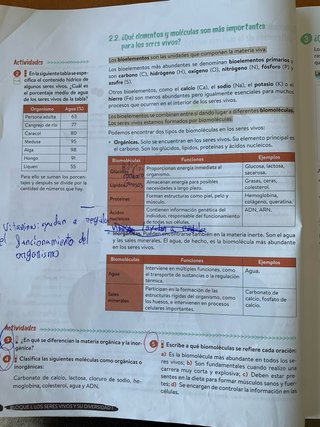 2.2. ¿Qué elementos y moléculas son más importantes
para los seres vivos?
Los bioelementos son las unidades que componen la materia viva.
Los bioelementos más abundantes se denominan bioelementos primarios y
son carbono (C), hidrógeno (H), oxígeno (O), nitrógeno (N), fósforo (P) y
azufre (S).
Otros bioelementos, como el calcio (Ca), el sodio (Na), el potasio (K) o el
hierro (Fe) son menos abundantes pero igualmente esenciales para muchos
procesos que ocurren en el interior de los seres vivos.
Los bioelementos se combinan entre sí dando lugar a diferentes biomoléculas.
Los seres vivos estamos formados por biomoléculas.
Podemos encontrar dos tipos de biomoléculas en los seres vivos:
• Orgánicas. Solo se encuentran en los seres vivos. Su elemento principal es
el carbono. Son los glúcidos, lípidos, proteínas y ácidos nucleicos.
Biomoléculas Funciones Ejemplos
Proporcionan energía inmediata al
organismo.
Glucosa, lactosa,
sacarosa.
Lípidos
Almacenan energía para posibles
necesidades a largo plazo.
Grasas, ceras,
colesterol.
Proteínas
Forman estructuras como piel, pelo y
músculo.
Hemoglobina,
colágeno, queratina.
Ácidos
nucleicos
Contienen información genética del
individuo, responsable del funcionamiento
de todas sus células.
ADN, ARN.
pueden encontrarse también en la materia inerte. Son el agua
y las sales minerales. El agua, de hecho, es la biomolécula más abundante
en los seres vivos.
Biomoléculas Funciones Ejemplos
Agua
Interviene en múltiples funciones, como
el transporte de sustancias o la regulación
térmica.
Agua.
Sales
minerales
Participan en la formación de las
estructuras rígidas del organismo, como
los huesos, e intervienen en procesos
celulares importantes.
Carbonato de
calcio, fosfato de
calcio.
Actividades
2 En la siguiente tabla se espe-
cifica el contenido hídrico de
algunos seres vivos. ¿Cuál es
el porcentaje medio de agua
de los seres vivos de la tabla?
Organismo Agua (%)
Persona adulta 63
Cangrejo de río 77
Caracol 80
Medusa 95
Alga 98
Hongo 91
Liquen 55
Para ello se suman los porcen-
tajes y después se divide por la
cantidad de números que hay.
Vitaminas: ayudan a regular
el funcionamiento del
organismo
Actividades
3 ¿En qué se diferencian la materia orgánica y la inor-
gánica?
4 Clasifica las siguientes moléculas como orgánicas o
inorgánicas:
Carbonato de calcio, lactosa, cloruro de sodio, he-
moglobina, colesterol, agua y ADN.
5 Escribe a qué biomoléculas se refiere cada oración:
a) Es la biomolécula más abundante en todos los se-
res vivos; b) Son fundamentales cuando realizo una
carrera muy corta y explosiva; c) Deben estar pre-
sentes en la dieta para formar músculos sanos y fuer-
tes; d) Se encargan de controlar la información en las
células.
BLOQUE I. LOS SERES VIVOS Y SU DIVERSIDAD